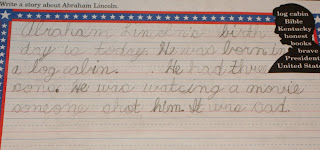 Write a story about Abraham Lincoln.
log cabin
Bible
Kentucky
honest
books
brave
President
United State
Abraham Lincoln's birth
day is today. He was born in
a log cabin. He had three
sons. He was watcing a movie
someone shot him. It was sad.